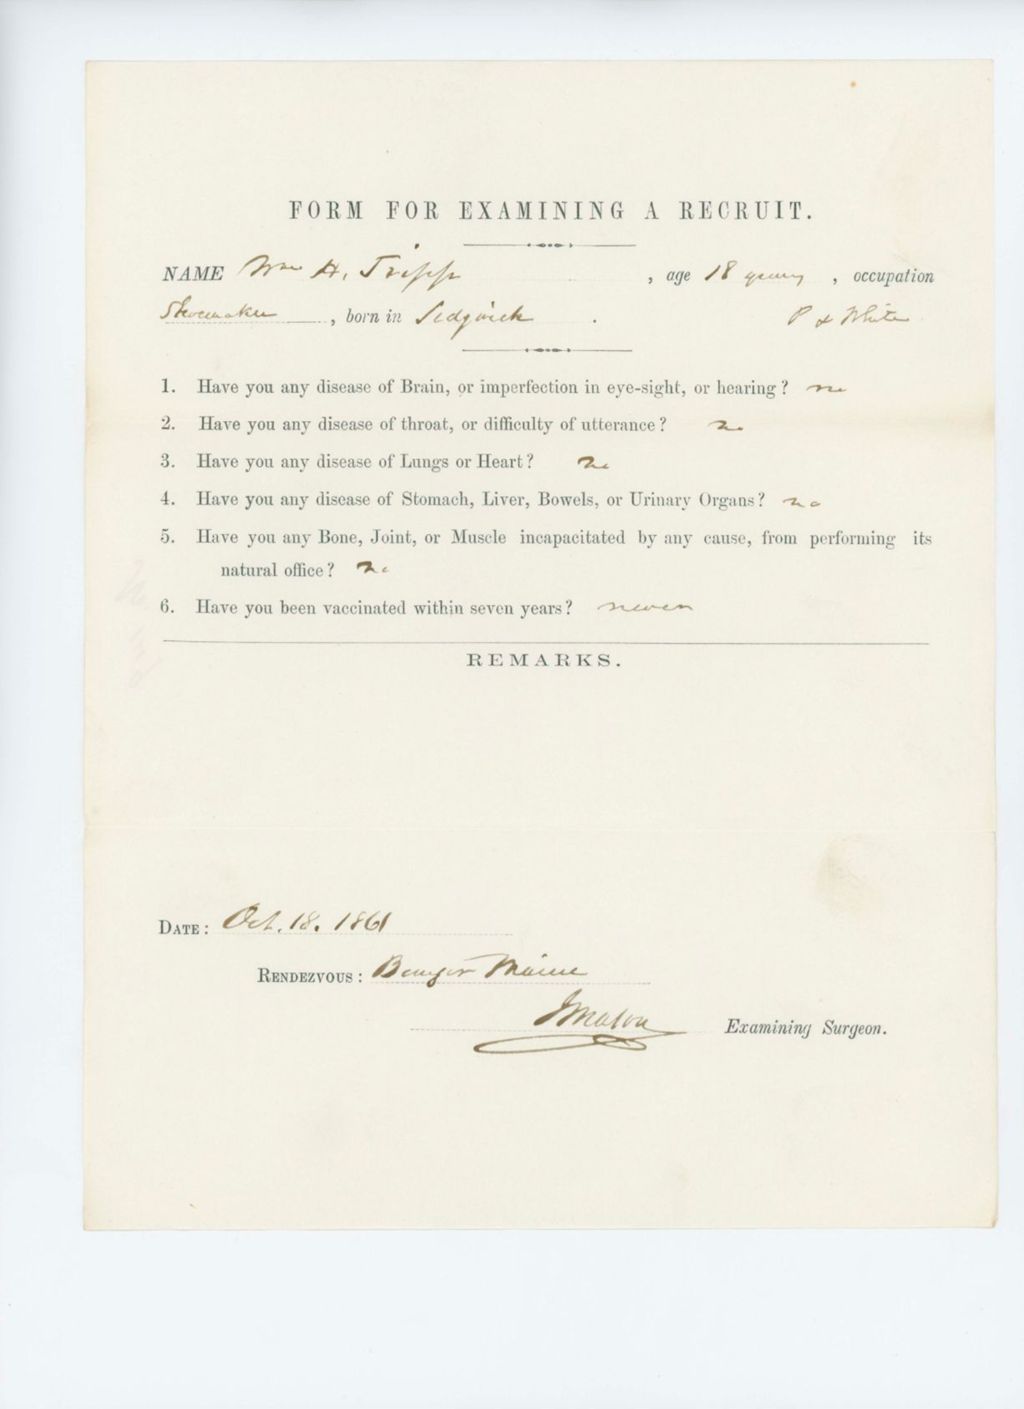 FORM FOR EXAMINING A RECRUIT.
NAME Wm H. Tripp , age 18 years , occupation
Shoemaker , born in Sedgwick . P & White
1. Have you any disease of Brain, or imperfection in eye-sight, or hearing? no
2. Have you any disease of throat, or difficulty of utterance? no
3. Have you any disease of Lungs or Heart? no
4. Have you any disease of Stomach, Liver, Bowels, or Urinary Organs? no
5. Have you any Bone, Joint, or Muscle incapacitated by any cause, from performing its
natural office? no
6. Have you been vaccinated within seven years? never
REMARKS.
DATE: Oct. 18. 1861
RENDEZVOUS: Bangor Maine
Mason Examining Surgeon.